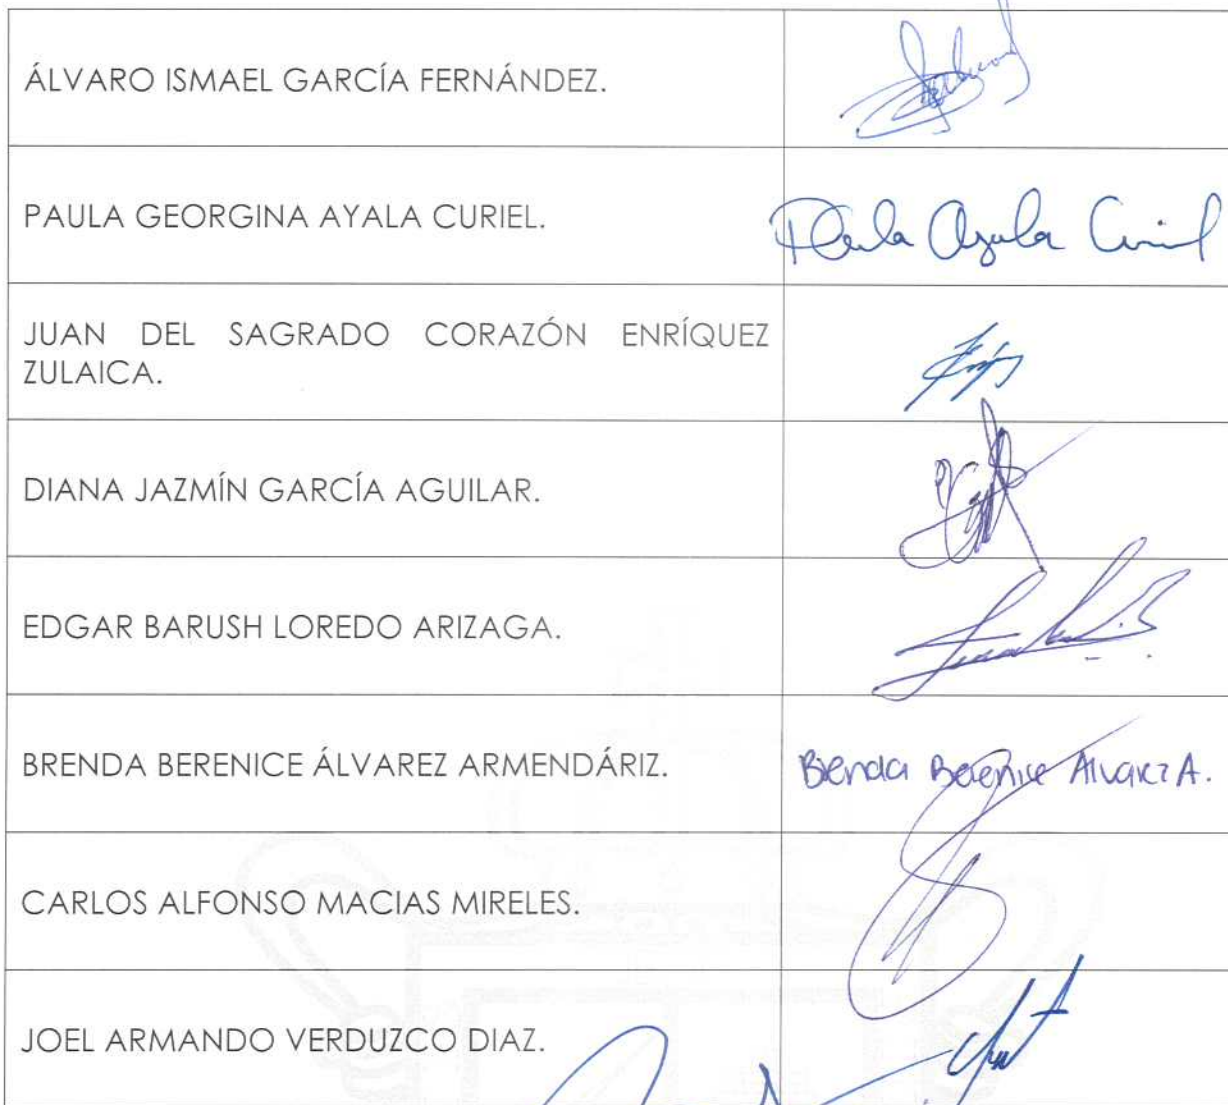 ÁLVARO ISMAEL GARCÍA FERNÁNDEZ.
PAULA GEORGINA AYALA CURIEL.
Paula Ayala Curiel
JUAN DEL SAGRADO CORAZÓN ENRÍQUEZ
ZULAICA.
DIANA JAZMÍN GARCÍA AGUILAR.
EDGAR BARUSH LOREDO ARIZAGA.
BRENDA BERENICE ÁLVAREZ ARMENDÁRIZ.
Brenda Berenice Alvarez A.
CARLOS ALFONSO MACIAS MIRELES.
JOEL ARMANDO VERDUZCO DIAZ.